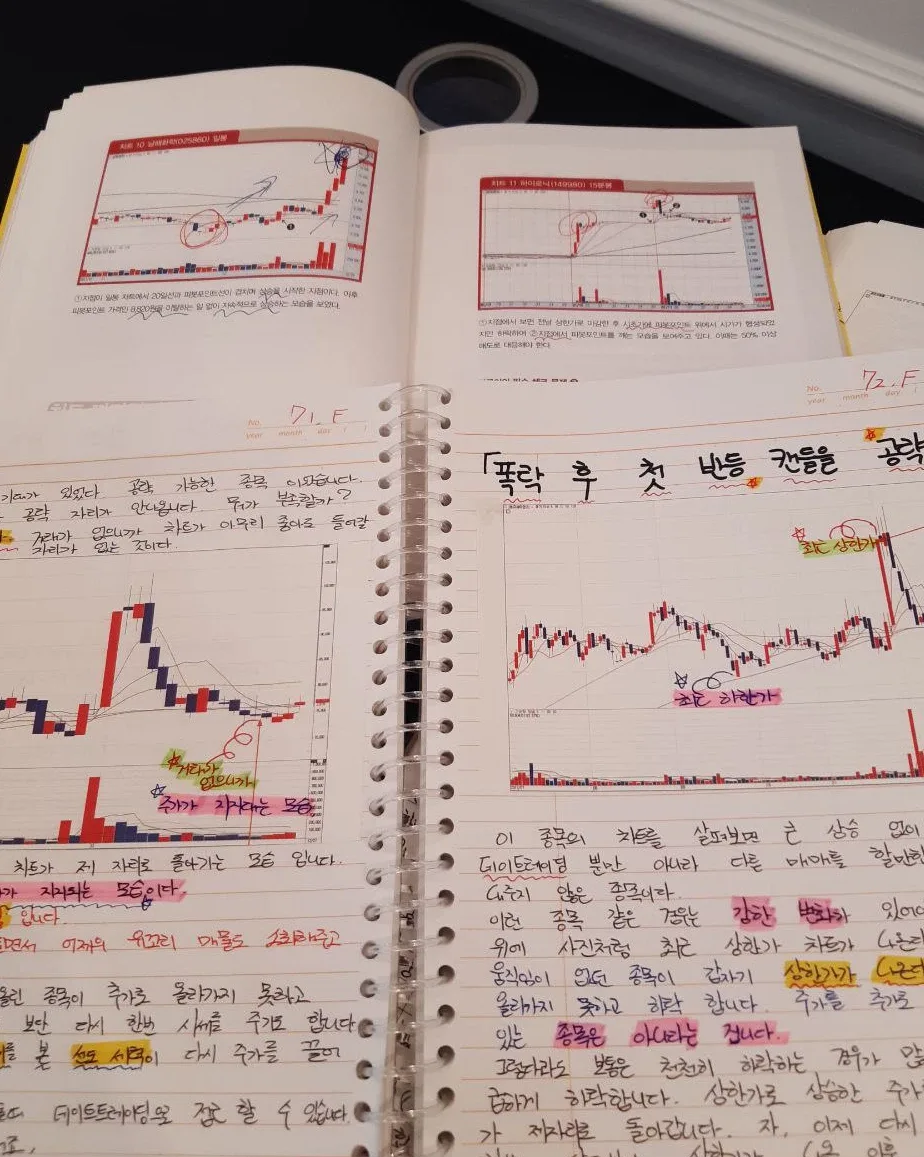 차트 10 남해화학(025860) 일봉
①지점이 일봉 차트에서 20일선과 피봇포인트선이 겹치며 상승을 시작한 지점이다. 이후
피봇포인트 가격인 8,820원을 이탈하는 일 없이 지속적으로 상승하는 모습을 보였다.
차트 11 하이로닉(149980) 15분봉
①지점에서 보면 전날 상한가로 마감한 후 시초가에 피봇포인트 위에서 시가가 형성되었
지만 하락하여 ②지점에서 피봇포인트를 깨는 모습을 보여주고 있다. 이때는 50% 이상
매도로 대응해야 한다.
No. 71. F
year month day
있었다 공략 가능한 종목 이었습니다.
공략 자리가 안나옵니다 뭐가 부족할까?
거래가 없으니까 차트가 아무리 좋아도 들어갈
자리가 없는 것이다.
거래가
없으니까
주가가 지지되는 모습
차트가 제 자리로 돌아가는 모습 입니다.
가 지지되는 모습이다.
입니다
면서 어제의 윗꼬리 매물도 소화해주고
올린 종목이 추가로 올라가지 못하고
보단 다시 한번 시세를 주기도 합니다
를 본 선도 세력이 다시 주가를 끌어
데이트레이딩으로 접근 할 수 있습니다.
No. 72. F
year month day
「폭락 후 첫 반등 캔들을 공략
최근 상한가
최근 하한가
이 종목의 차트를 살펴보면 큰 상승 없이
데이트레이딩 뿐만 아니라 다른 매매를 할만한
나주지 않은 종목이다.
이런 종목 같은 경우는 강한 변화가 있어야
위에 사진처럼 최근 상한가 차트가 나온다
움직임이 없던 종목이 갑자기 상한가가 나온다
올라가지 못하고 하락 합니다. 주가를 추가로
있는 종목은 아니라는 겁니다.
그렇다라도 보통은 천천히 하락하는 경우가 많
급하게 하락합니다. 상한가로 상승한 주가
가 제자리로 돌아갑니다. 자, 이제 다시
상한가가 나온 이후